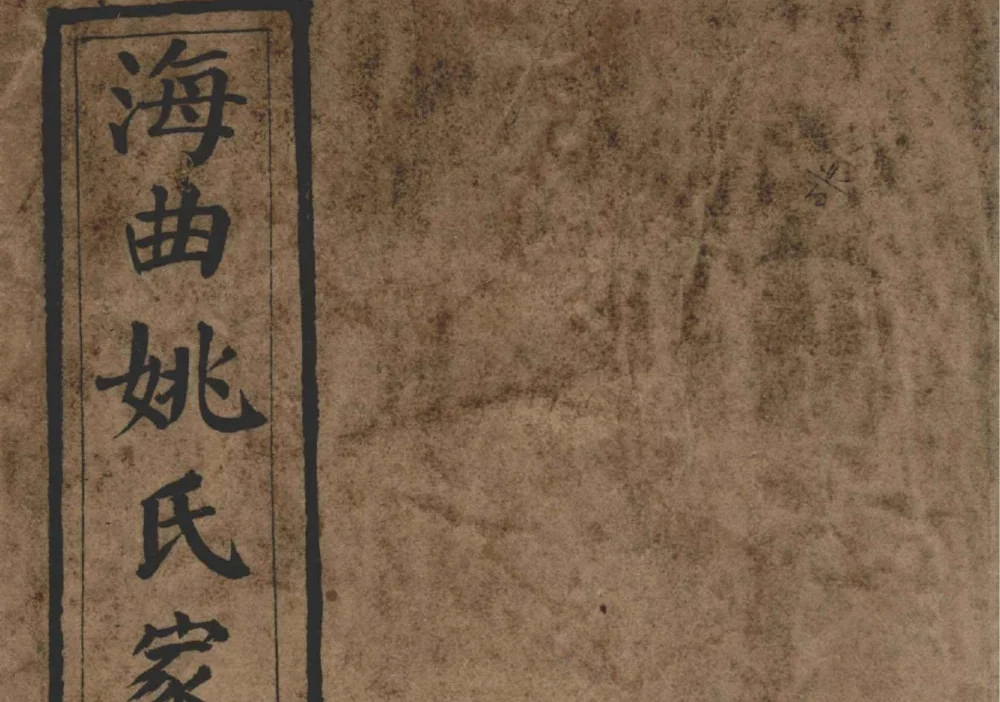 海曲姚氏家